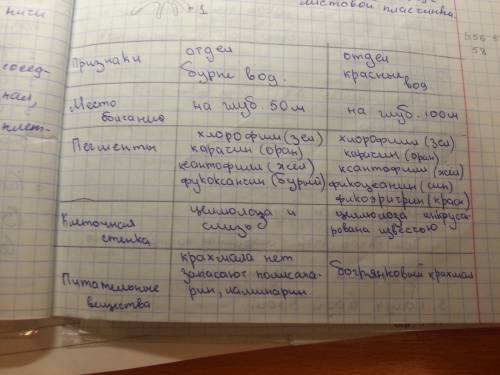 +1
листовой пластинка.
ниси
сосед-
ная,
плет-
58
Признаки
отдел
бурые вод.
отдел
красные
вод
Место
обитания
на глуб. 50м
на глуб. 100м
Пегменты
хлорофилл (зел)
карасин (оран)
ксантофилл (жел)
фукоксансин (бурый)
хлорофилл (зел)
карасин (оран)
ксантофилл (жел)
фикоцеанин (син)
фикоэритрин (красн)
Клеточная
стенка
целлюлоза и
слизь
целлюлоза инкруста-
рована известью
Питательные
вещества
крахмала нет
запасают полисаха-
рин, ламинарин
багрянковый крахмал